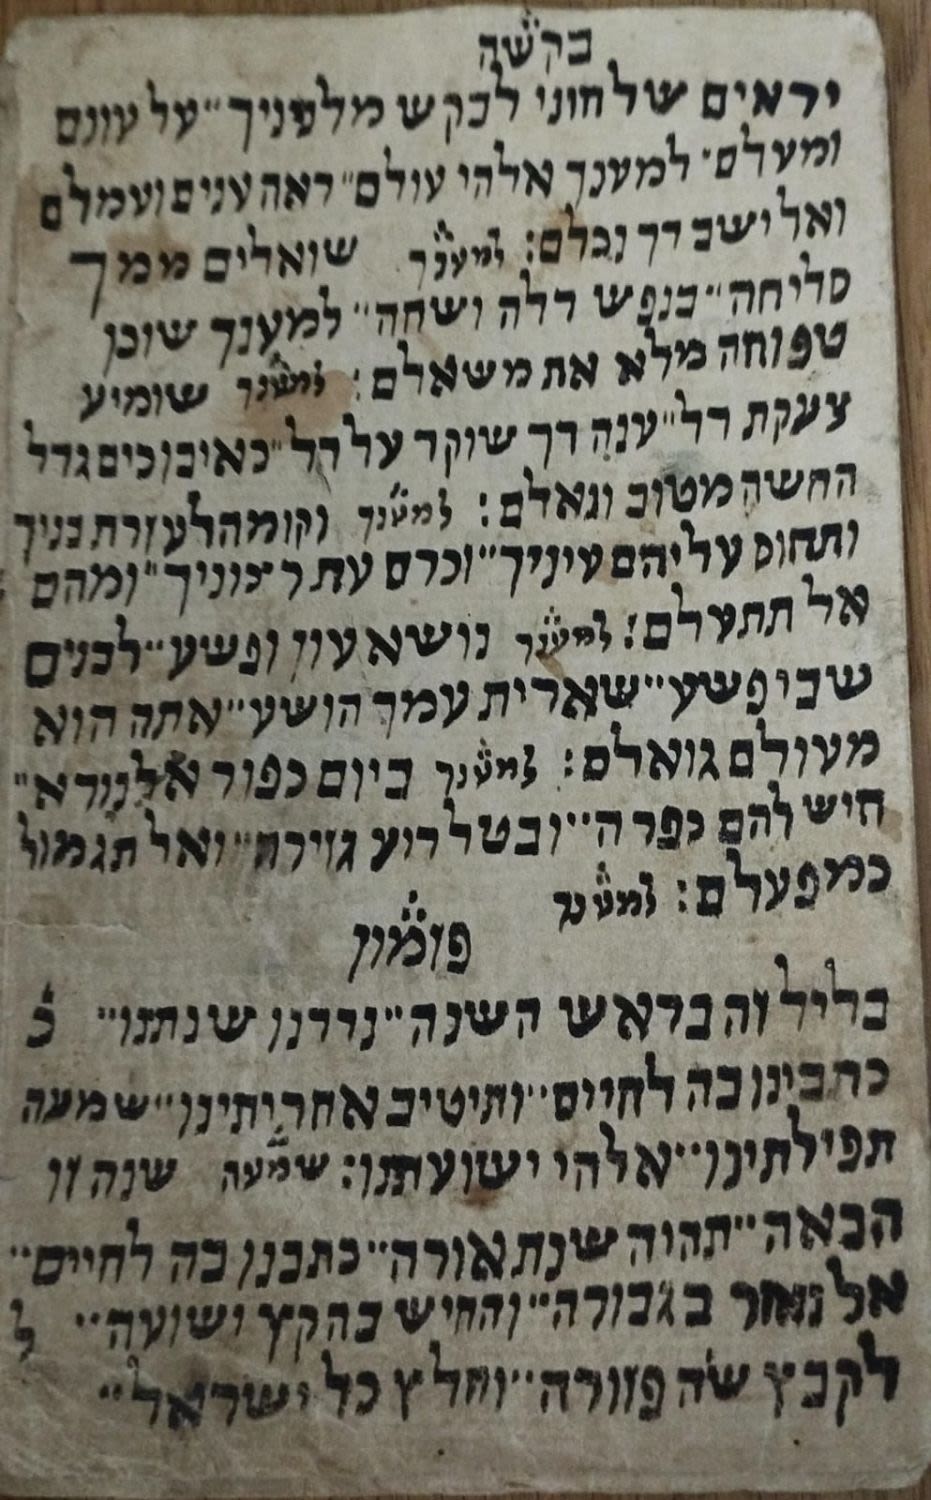 בקשה
יראים שלחוני לבקש מלפניך״ על עונם
ומעלם׳ למענך אלהי עולם״ ראה ענים ועמלם
ואל ישב דך נכלם: למענך שואלים ממך
סליחה״ כנפש דלה ושחה״ למענך שוכן
טפוחה מלא את משאלם: למענך שומיע
צעקת דל״ ענה דך שוקד על דל״ כאיבוכים גדל
החשה מטוב וגאלם: למענך וקומה לעזרת בניך
ותחוס עליהם עיניך״ וכרם עת רצוניך״ ומהם
אל תתעלם: למענך נושא עון ופשע״ לבנים
שבי פשע״ שארית עמך הושע״ אתה הוא
מעולם גואלם: למענך ביום כפור אל נורא״
חיש להם כפרה״ ובטל רוע גזירה״ ואל תגמול
כמפעלם: למענך
פזמון
בליל זה בראש השנה״ נדרנו שנתנו״ כ
כתבינו בה לחיים״ ותיטיב אחריתינו״ שמעה
תפילתינו״ אלהי ישועתנו: שמעה שנה זו
הבאה״ תהוה שנת אורה״ כתבנו בה לחיים״
אל נאזר בגבורה״ והחיש בהקץ ישועה״ ל
לקבץ שה פזורה״ וחלץ כל ישראל״